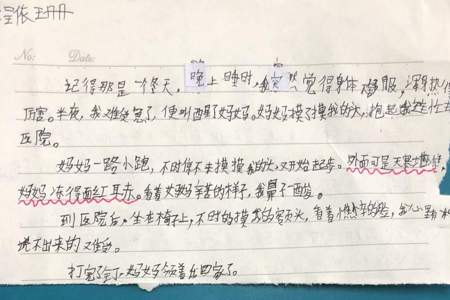 程依玥
No: Date:
记得那是一个冬天,晚上睡时,我突然觉得身体不舒服,浑身热
厉害。半夜,我难受急了,便叫醒了妈妈。妈妈摸了摸我的头,抱起我连忙去
医院。
妈妈一路小跑,不时停下来摸摸我的头又开始起步。外面可是天寒地冻,
妈妈冻得面红耳赤。看着妈妈辛苦的样子,我鼻子一酸。
到医院后,坐在椅子上,不时的摸我的额头,看着憔悴的脸,我心里
说不出来的难受。
打完了针,妈妈领着我回家了。